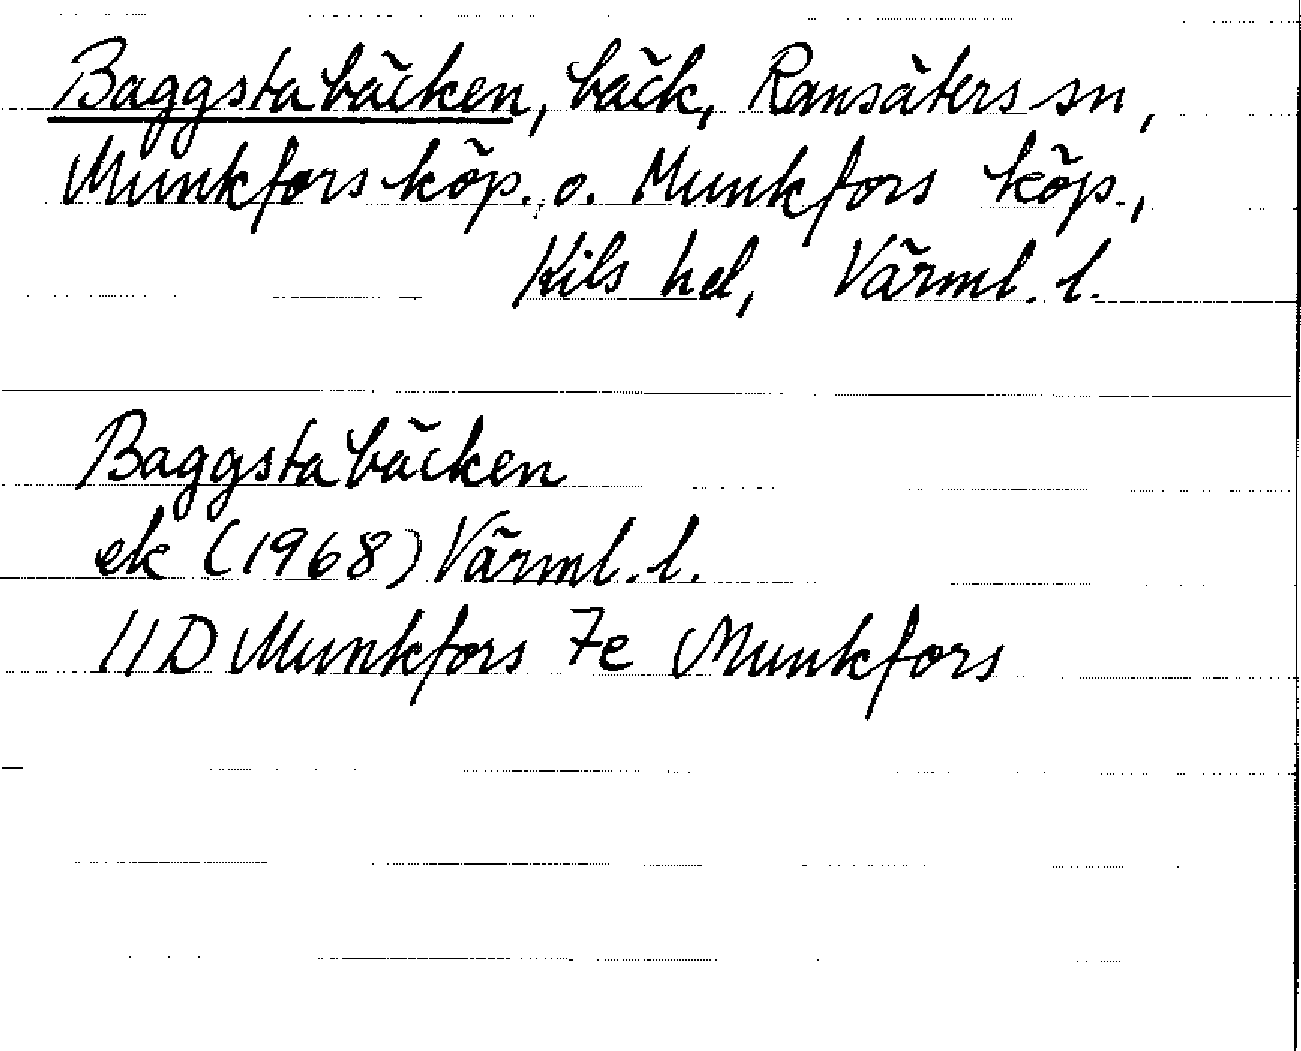 Baggstabäcken, bäck, Ransäters sn,
Munkfors köp. o. Munkfors köp.,
Kils hd, Värml. l.
Baggstabäcken
ek (1968) Värml. l.
11D Munkfors 7e Munkfors